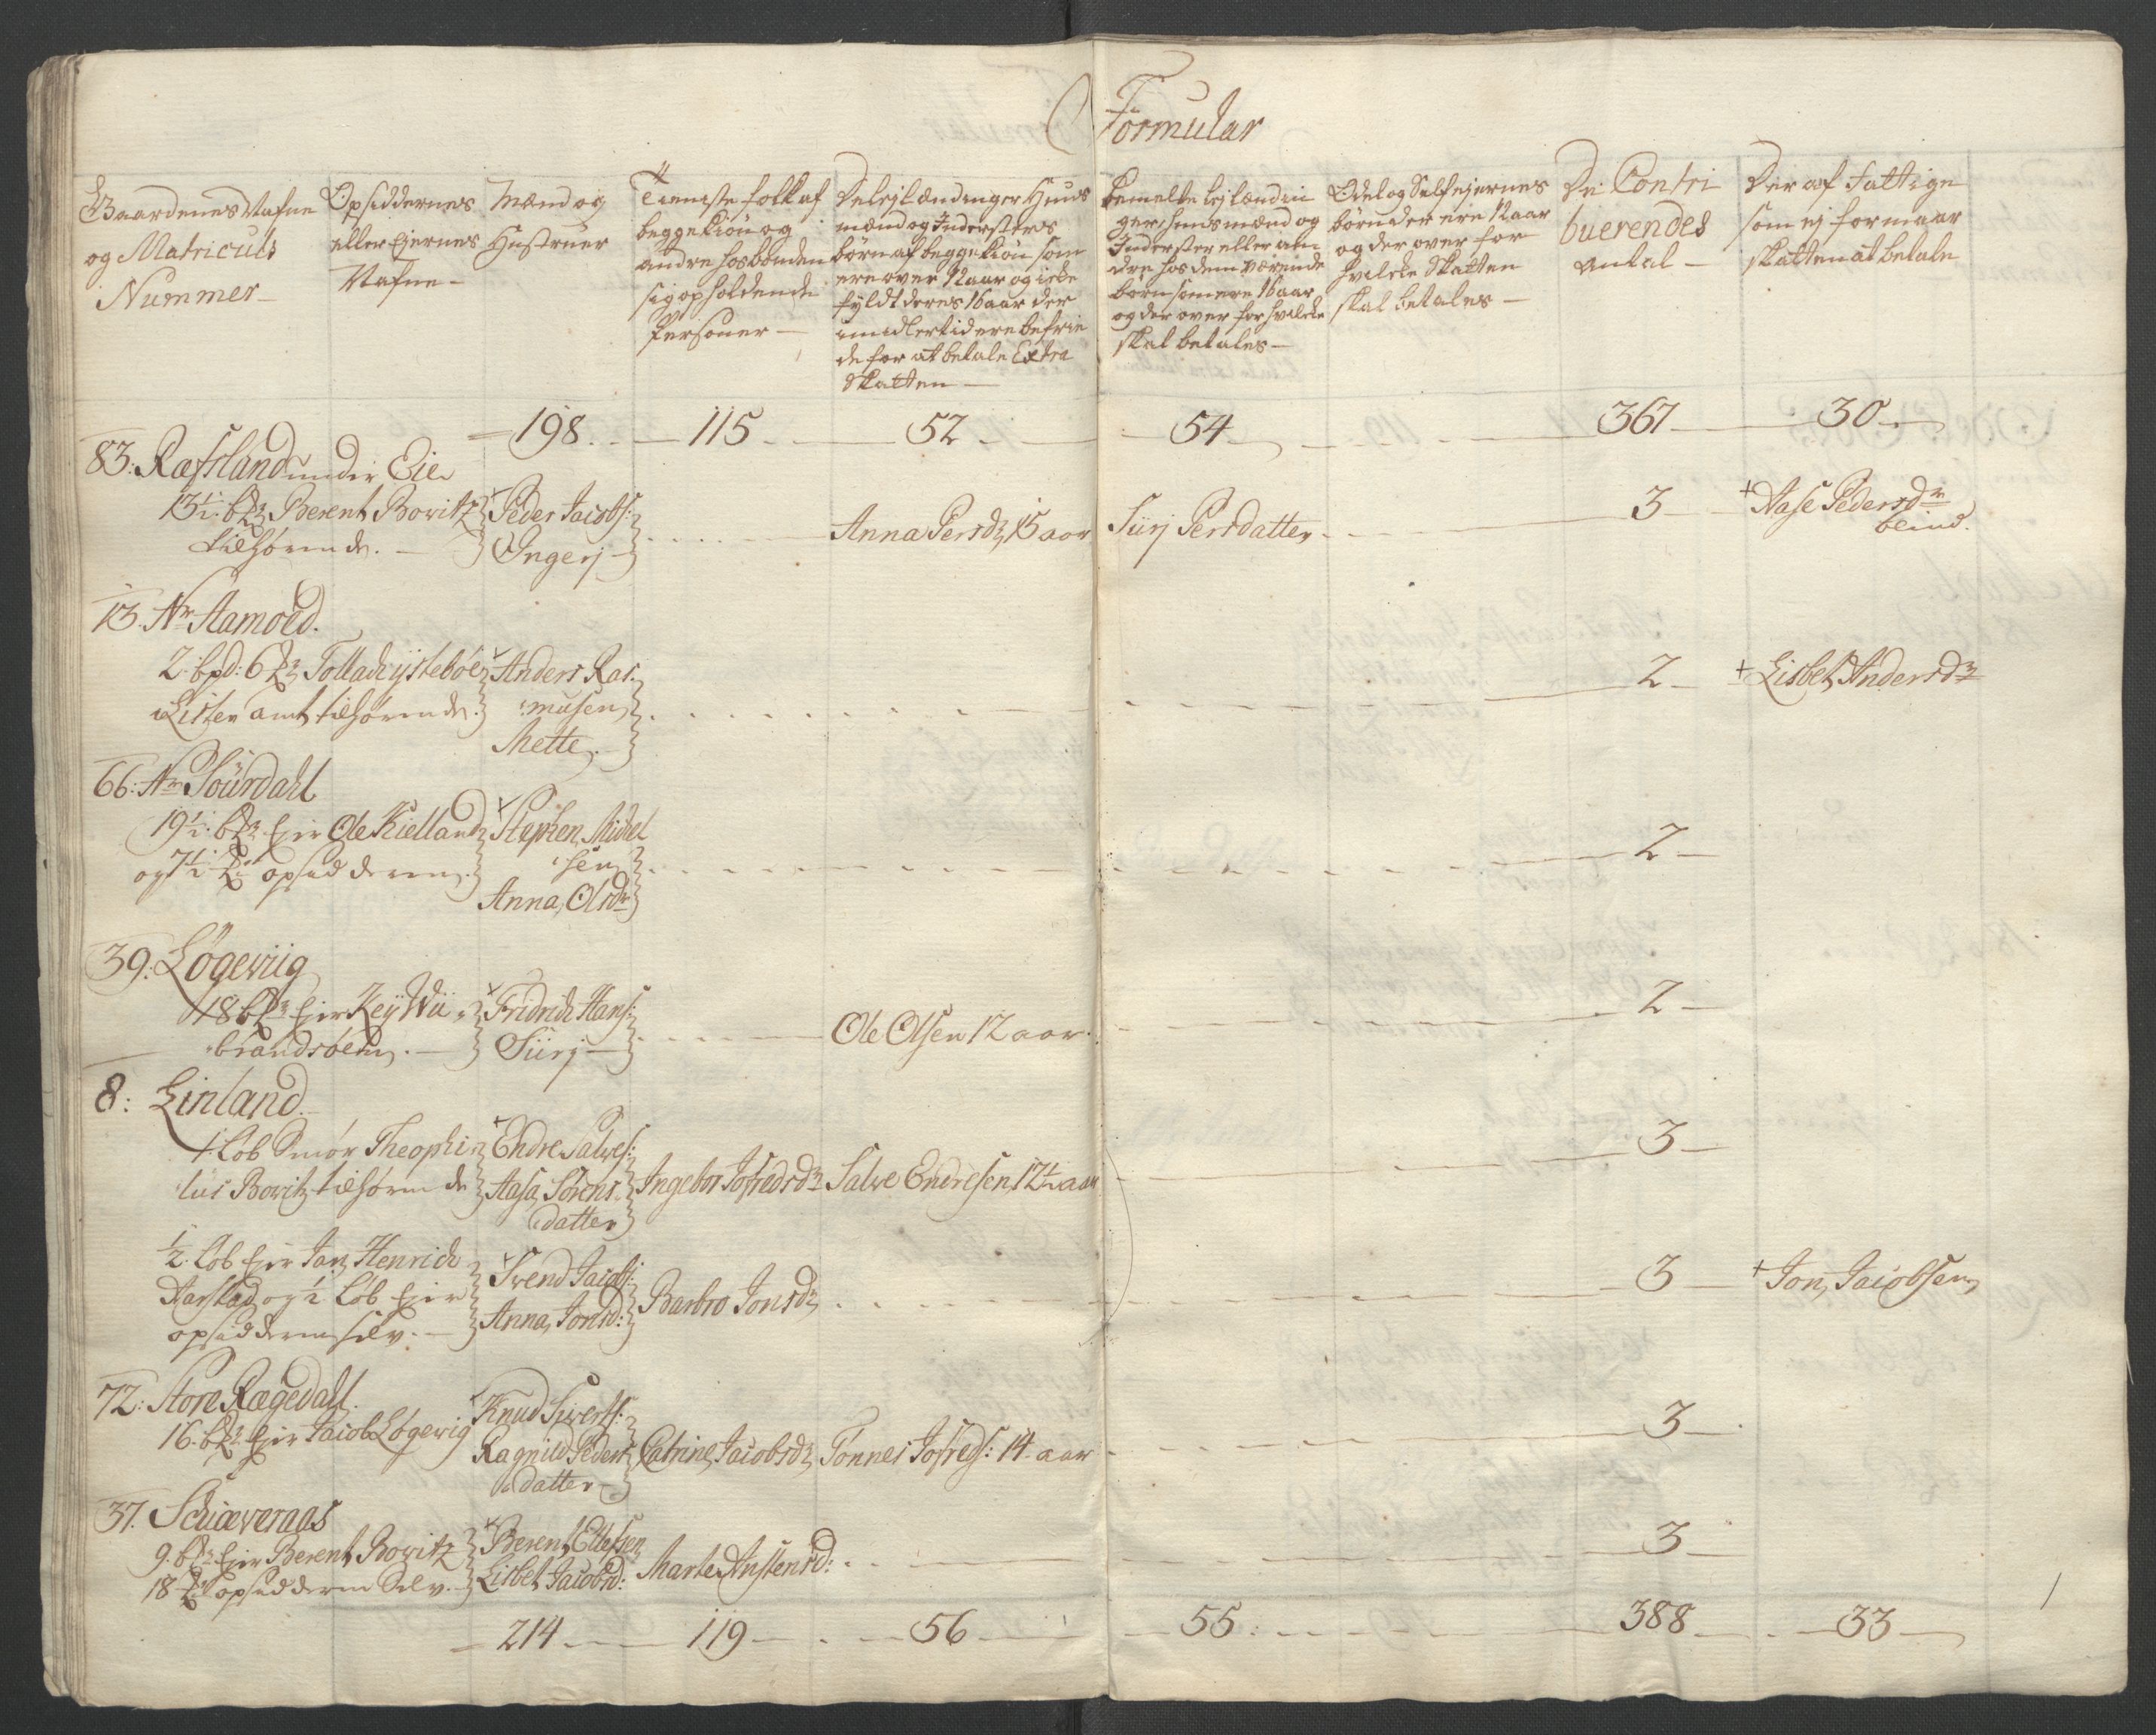 Formular
Gaardenes Nafne
og Matriculs
Nummer
Opsiddernes
eller Ejernes
Nafne
Mænd og
Hustruer
Tieneste folk af
begge Kiön og
andre hos bonden
sig opholdende
Personer
De lejlændinger Huus
mænd og Indersters
börn af begge Kiön som
ere over 12 aar og icke
fyldt deres 16 aar der
imidlertid ere befrie
de for at betale Extra
Skatten
bemelte lejlændin
ger, huusmænd og
Inderster eller an
dre hos dem værende
børn som ere 16 aar
og der over for hvilcke
skal betales
Odel og Selfejernes
børn der ere 12 aar
og der over for
hvilcke Skatten
skal betales
De Contri
buerendes
Antal
Der af Fattige
som ej formaar
skatten at betale
198 115 52 54 367 30
83. Ræfsland under Eie
13½ bpd Berent Bovitz
tilhørende.
Peder Jacobs:
Ingerj
Anna Persdr 15 aar
Siirj Persdatter
3
+ Aase Pedersdr
blind.
13. Nr Aamoed.
2 bpd: 6 Tolladz ÿstebøe
i Lister amt tilhørende.
Anders Ras-
musen
Mette
2
+ Lisbet Andersdr
66. Nr Sourdahl
19½ Ejer Ole Kielland
og 7½ opsidderen.
Stephen Michel
sen
Anna Olsdr
2
39. Løgeviig
18 Ejer Keÿ Wii
brandsøen.
Fridrich Hans:
Siirj
Ole Olsen 12 aar
2
8: Linland
1 Løb Smör Theophi
lus Bovitz tilhørende
Endre Salves:
Aasa Sörens
datter
Ingebor Jofredsdr
Salve Endresen 12½ aar
3
½ Løb Ejer Jan Henrich
Aarstad og ½ Løb Ejer
opsidderen selv.
Svend Jacobs:
Anna Jonsd:
Barbro Jonsdr
3
+ Jon Jacobsen
72. Store Rægedahl.
16 Ejer Jacob Løgevig
Knud Siverts:
Ragnild Peders
datter
Catrine Jacobsdr
Tønnes Jofreds: 14 aar
3
37. Schæveraas
9 Ejer Berent Bovitz
18 opsidderen Selv.
Berent Ellefsen
Lisbet Jacobsd:
Marte Anstensd:
3
214 119 56 55 388 33